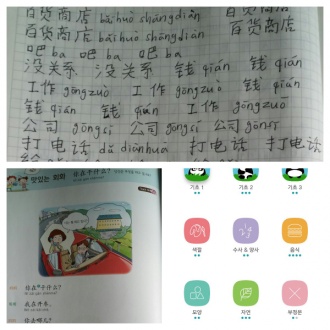 百货商店 bǎihuò shāngdiàn 百货商店
百货商店 bǎihuò shāngdiàn 百货商店
吧 ba 吧 ba 吧 ba
没关系 没关系 钱 qián 钱 qián
工作 gōngzuò 工作 gōngzuò
钱 qián 钱 qián 工作 gōngzuò
公司 gōngsī 公司 gōngsī 公司 gōngsī
打电话 dǎ diànhuà 打电话 打电话
맛있는 회화
你在干什么?
我在开车。
你去哪儿?
기초 1 기초 2 기초 3
색깔 수사 & 양사 음식
모양 자연 부정문